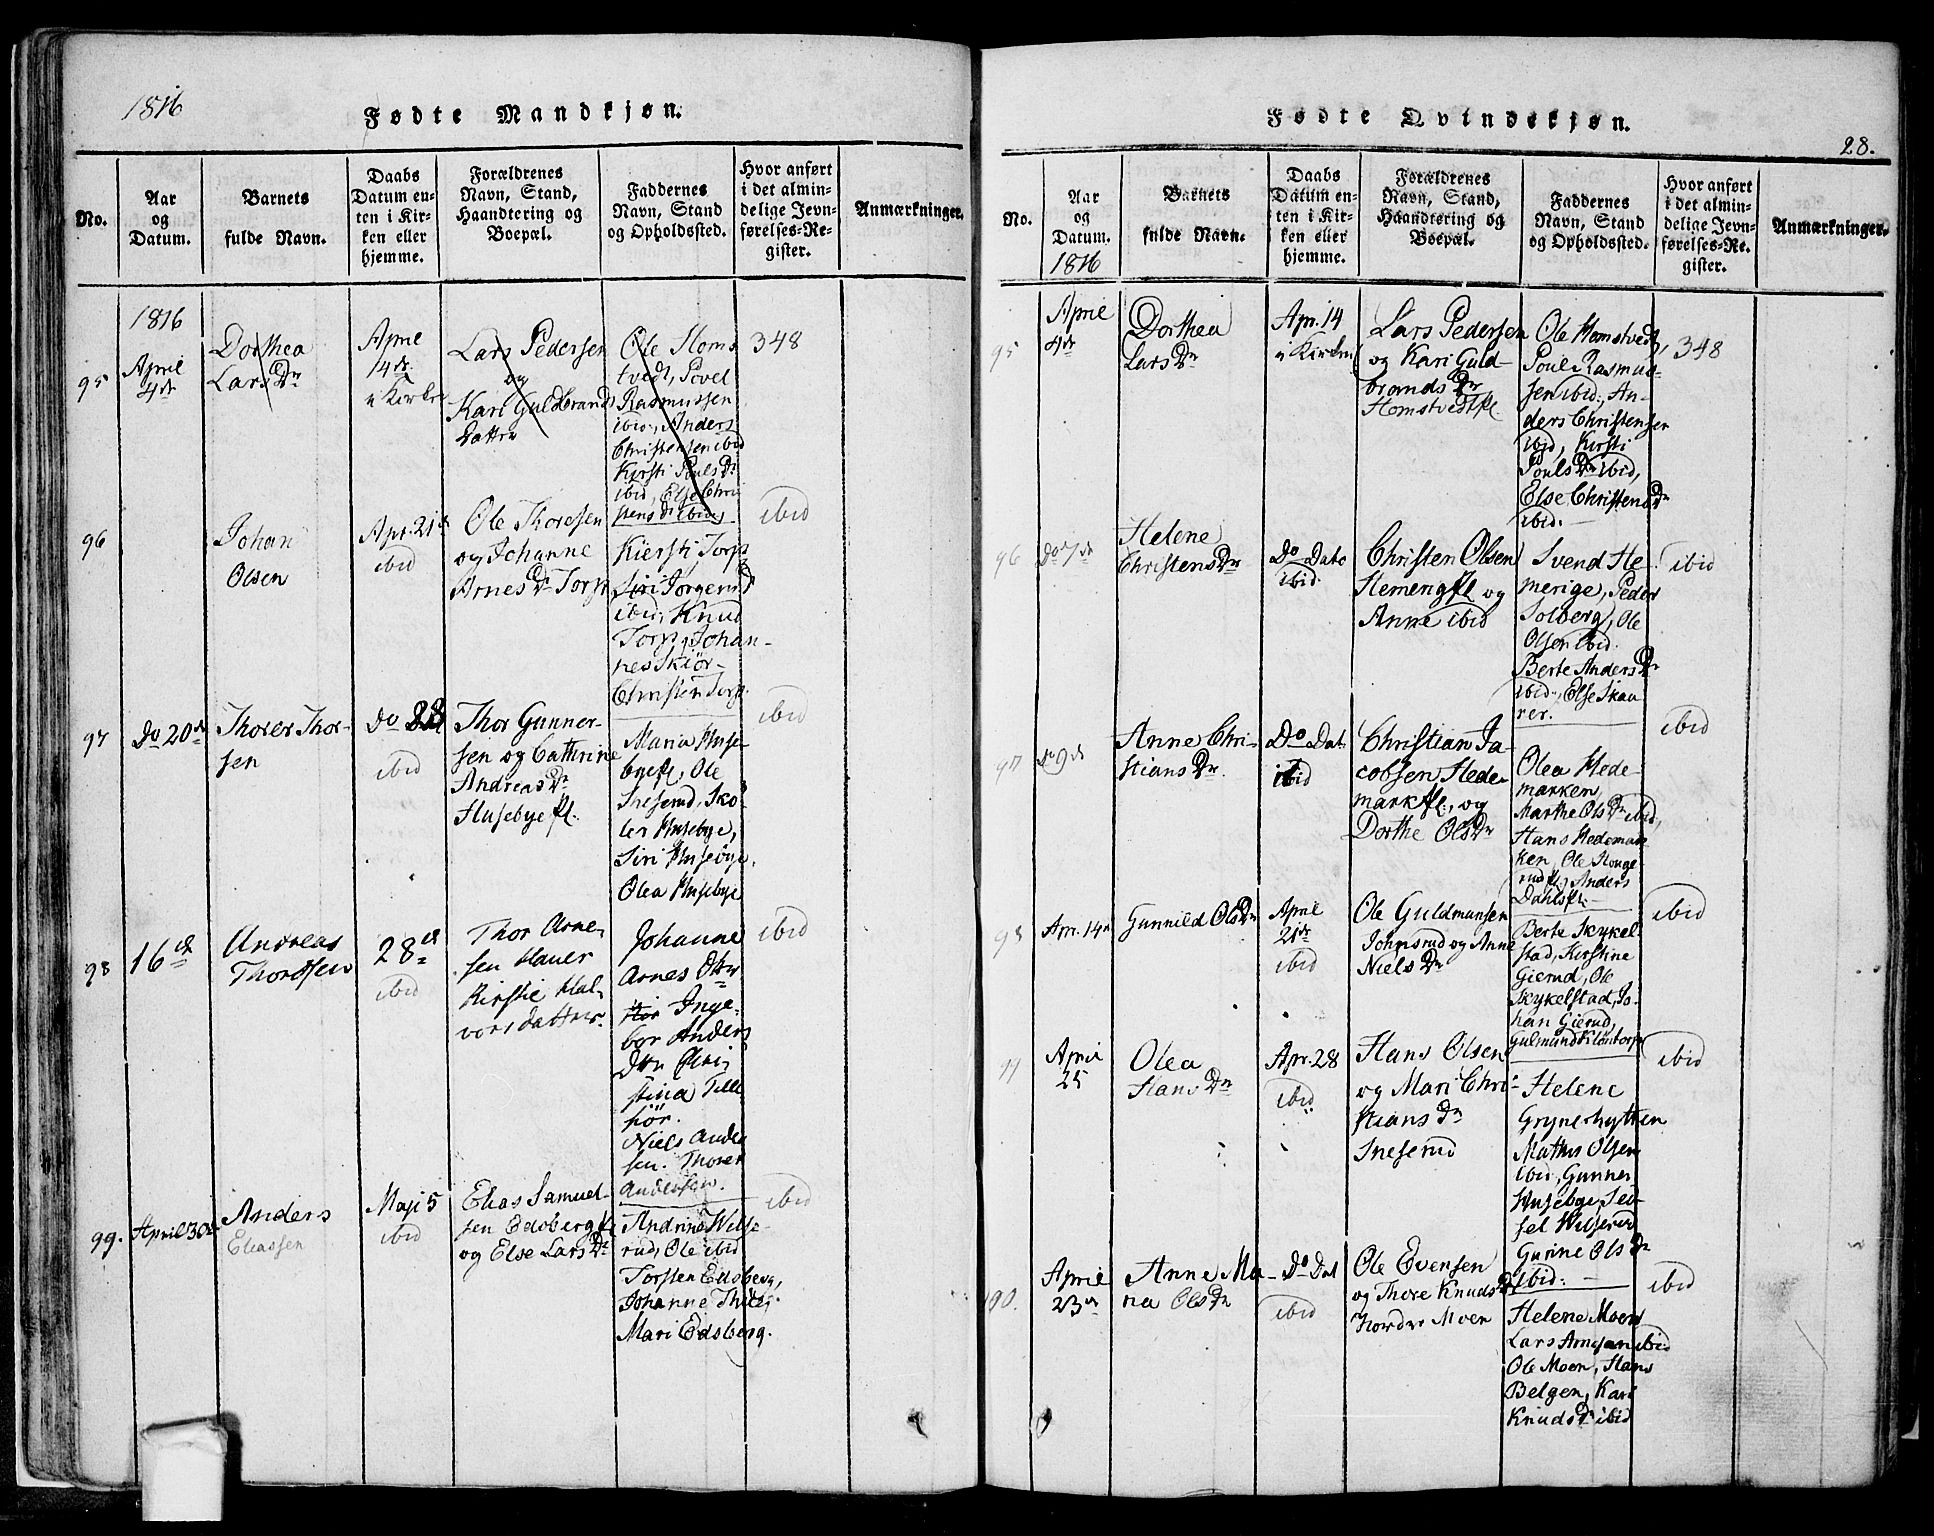 1816
Fødte Mandkjøn.
No.
Aar
og
Datum.
Barnets
fulde Navn.
Daabs
Datum en-
ten i Kir-
ken eller
hjemme.
Forældrenes
Navn, Stand,
Haandtering og
Boepæl.
Faddernes
Navn, Stand
og Opholdssted.
Hvor anført
i det almin-
delige Jevn-
førelses-Re-
gister.
Anmærkninger.
95
1816
April
4de
Dorthea
Lars Dr
April
14de
i Kirken
Lars Pedersen
og
Kari Guldbrands
Datter
Ole Homs
tvedt, Povel
Rasmussen
ibid., Anders
Christensen ibid
Kirsti Pouls Dr
ibid, Else Chri
stens Dr ibid.
348
96
Johan
Olsen
Apr. 21de
ibid
Ole Thoresen
og Johanne
Arnes Dr Torp
Kiersti Torp
Siri Jørgens Dr
ibid, Knud
Torp, Johan-
nes Skiør-
Christen Torp.
ibid
97
Do 20de
Thorer Thor-
sen
Do 28
ibid
Thor Gunner-
sen og Cathrine
Andreas Dr
Husebye Pl.
Maria Huse-
bye Pl, Ole
Sneserud, Sko-
ler Husebye,
Siri Husebye,
Olea Husebye
ibid
98
16de
Andreas
Thordsen
28de
ibid
Thor Arne-
sen Hauer
Kirstie Hal-
vorsdatter.
Johanne
Arnes Dtr
Hør Inge-
bor Anders
Dtr Chri
stina Tille
hør.
Niels Ander
sen. Thorer
Andersen.
ibid
99.
April 30de
Anders
Eliassen
Maji 5
ibid
Elias Samuel-
sen Edsberg Pl
og Else Lars Dr
Andrine Welse-
rud, Ole ibid
Torsten Edsberg,
Johanne
Mari Edsberg.
ibid
Fødte Qvindekjøn.
28.
No.
Aar
og
Datum.
1816
Barnets
fulde Navn.
Daabs
Datum en-
ten i Kir-
ken eller
hjemme.
Forældrenes
Navn, Stand,
Haandtering og
Boepæl.
Faddernes
Navn, Stand
og Opholdssted.
Hvor anført
i det almin-
delige Jevn-
førelses-Re-
gister.
Anmærkninger.
95
April
4de
Dorthea
Lars Dr
Apr. 14
i Kirken
Lars Pedersen
og Kari Guld-
brands Dr
Homstvedt Pl.
Ole Homstvedt,
Poul Rasmus-
sen ibid., An-
ders Christensen
ibid, Kirsti
Pouls Dr ibid,
Else Christens Dr
ibid.
348
96
Do 7de
Helene
Christens Dr
Do Dato
ibid.
Christen Olsen
Hemeng Pl og
Anne ibid
Svend He-
merige, Peder
Solberg, Ole
Olsen ibid.
Berte Anders Dr
ibid., Else Skau
rer.
ibid
97
Do 9de
Anne Chri-
stians Dr.
Do Dat.
ibid
Christian Ja-
cobsen Hede-
mark Pl., og
Dorthe Ols Dr
Olea Hede-
marken,
Marthe Ols Dr ibid,
Hans Hedemar
ken, Ole Houge
rud Pl, Anders
Dahls Pl.
ibid
98
Apr. 14de
Gunnild Ols Dr
April
21de
ibid
Ole Guldmunsen
Johnsrud og Anne
Niels Dr
Berte Skykel
stad, Kirstine
Gierud, Ole
Skykelstad, Jo-
han Gierud,
Gulmund Kløntorp
ibid
April
25
Olea
Hans Dr
Apr. 28
ibid
Hans Olsen
og Mari Chri-
stians Dr
Sneserud
Helene
Grynehytten
Mathis Olsen
ibid, Gunner
Husebye, Sis-
sel Welserud
Gurine Ols Dr
ibid.
ibid
April
23de
Anne Ma-
ria Ols Dr
Do Dat
ibid
Ole Evensen
og Thore Knuds Dr
Nordre Moen
Helene Moen
Lars ibid
Ole Moen, Hans
Belgen, Kari
Knuds Dr ibid
ibid